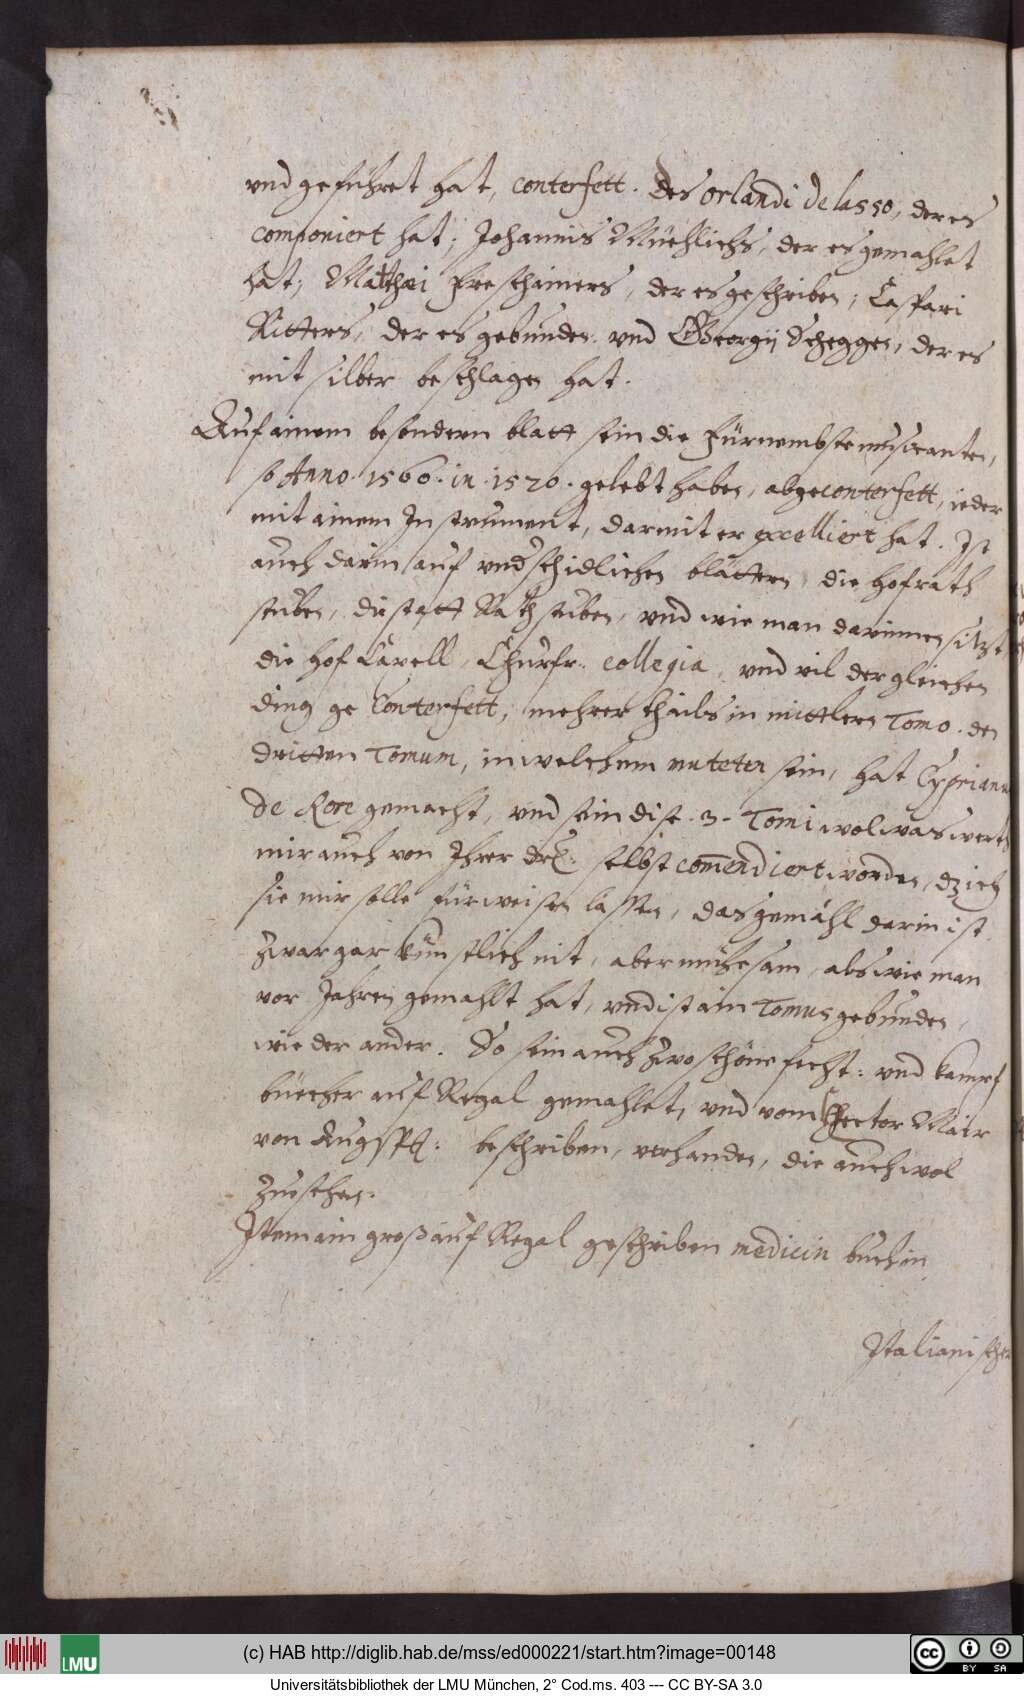 vnd gefuhret hat, conterfett. des orlandi de lasso, der es
componiert hat; Johannis Müehlichs, der es gemahlet
hat; Matthæi Freshamers, der es geschriben; Caspari
Ritters, der es gebunden. vnd Georgij Seghgen, der es
mit silber beschlagen hat.
Auf ainem besondern blatt sein die Fürnembste musicanten,
so Anno. 1560. in. 1570. gelebt haben, abgeconterfett, ieder
mit ainem Instrument, darmit er excelliert hat. Ist
auch darin auf vnderschidlichen blättern, die hofrath
stuben, die statt Rath stuben, vnd wie man darinnen sitzt
die hof Capell, Churfr: collegia, vnd vil dergleichen
ding ge Conterfett, mehrer thails in mittlern Tomo. den
dritten Tomum, in welchem muteten sein, hat Cyprianus
de Rore gemacht, vnd sein dise. 3. Tomi wol was werth
mir auch von Ihrer drl: selbst comendiert worden, dz ich
sie mir solle fürweisen lassen, das gemähl darin ist
zwar gar künstlich nit, aber mühesam, als wie man
vor Jahren gemahlt hat, vnd ist ain Tomus gebunden,
wie der ander. So sein auch zwo schöne fecht: vnd kampf
büecher auf Regal gemahlet, vnd vom Hector Mair
von Augspg: beschriben, verhanden, die auch wol
zusehen.
Item ain groß auf Regal geschriben medicin buch in
Italianischer
(c) HAB http://diglib.hab.de/mss/ed000221/start.htm?image=00148
LMU
cc BY SA
Universitätsbibliothek der LMU München, 2° Cod.ms. 403 --- CC BY-SA 3.0